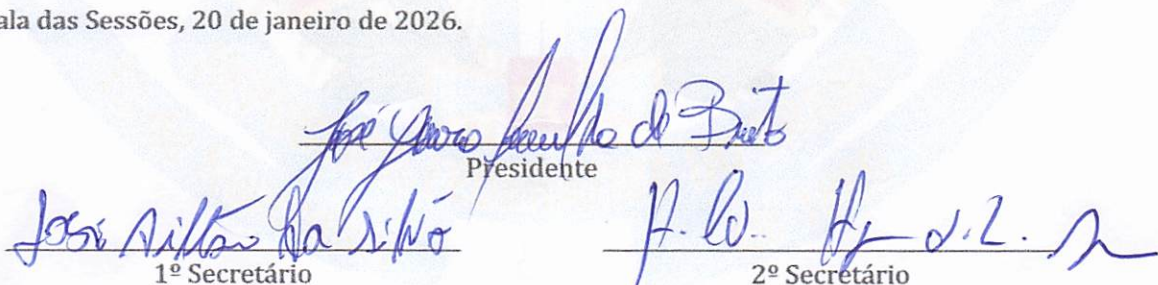 ala das Sessões, 20 de janeiro de 2026.
José de Brito
Presidente
José Ailton da Silva
1º Secretário
2º Secretário